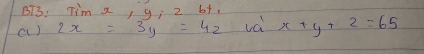 BT3: Tìm x, y, z bt,
a) 2x = 3y = 4z và x + y + z = 65